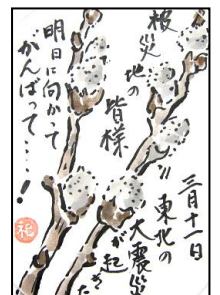 三月十一日
東北の
大震災
が起きた
被災
地の
皆様
明日に向かって
がんばって・・・!